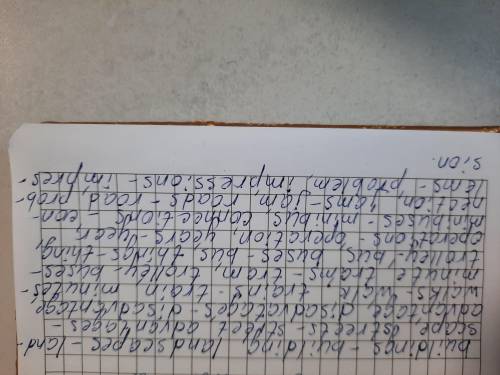 buildings - building, landscapes - land-
scape streets - street advantages -
adventage disadvatages - disadventage
walks - walk trains - train, minutes -
minute trams - tram, trolley - buses -
trolley - bus, buses - bus things - thing,
operations - operation, years - year,
minibuses - minibus, connections - con-
nection, jams - jam - roads - road, prob-
lems - problem, impressions - impres-
sion.